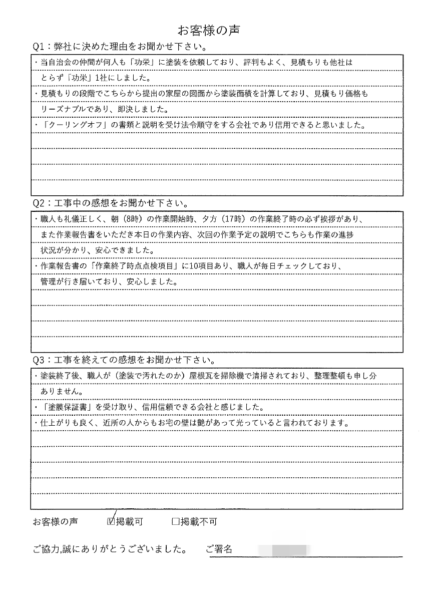 お客様の声
Q1：弊社に決めた理由をお聞かせ下さい。
・当自治会の仲間が何人も「功栄」に塗装を依頼しており、評判もよく、見積もりも他社は
とらず「功栄」1社にしました。
・見積もりの段階でこちらから提出の家屋の図面から塗装面積を計算しており、見積もり価格も
リーズナブルであり、即決しました。
・「クーリングオフ」の書類と説明を受け法令順守をする会社であり信用できると思いました。
Q2：工事中の感想をお聞かせ下さい。
・職人も礼儀正しく、朝（8時）の作業開始時、夕方（17時）の作業終了時の必ず挨拶があり、
また作業報告書をいただき本日の作業内容、次回の作業予定の説明でこちらも作業の進捗
状況が分かり、安心できました。
・作業報告書の「作業終了時点点検項目」に10項目あり、職人が毎日チェックしており、
管理が行き届いており、安心しました。
Q3：工事を終えての感想をお聞かせ下さい。
・塗装終了後、職人が（塗装で汚れたのか）屋根瓦を掃除機で清掃されており、整理整頓も申し分
ありません。
・「塗膜保証書」を受け取り、信用信頼できる会社と感じました。
・仕上がりも良く、近所の人からもお宅の壁は艶があって光っていると言われております。
お客様の声 ☑掲載可 □掲載不可
ご協力,誠にありがとうございました。 ご署名